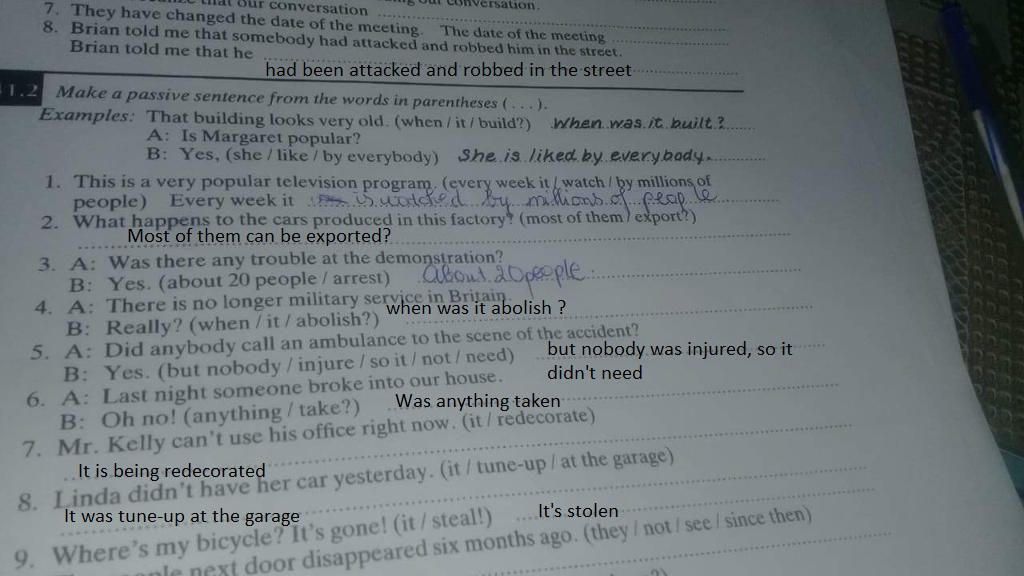 that our conversation
our conversation.
7. They have changed the date of the meeting. The date of the meeting
8. Brian told me that somebody had attacked and robbed him in the street.
Brian told me that he
had been attacked and robbed in the street
1.2 Make a passive sentence from the words in parentheses (...).
Examples: That building looks very old. (when / it / build?) When was it built?
A: Is Margaret popular?
B: Yes, (she / like / by everybody) She is liked by everybody.
1. This is a very popular television program. (every week it / watch / by millions of
people) Every week it is watched by millions of people
2. What happens to the cars produced in this factory? (most of them / export?)
Most of them can be exported?
3. A: Was there any trouble at the demonstration?
B: Yes. (about 20 people / arrest) about 20 people
4. A: There is no longer military service in Britain.
B: Really? (when / it / abolish?) when was it abolish ?
5. A: Did anybody call an ambulance to the scene of the accident?
B: Yes. (but nobody / injure / so it / not / need) but nobody was injured, so it
didn't need
6. A: Last night someone broke into our house.
B: Oh no! (anything / take?) Was anything taken
7. Mr. Kelly can't use his office right now. (it / redecorate)
It is being redecorated
8. Linda didn't have her car yesterday. (it / tune-up / at the garage)
It was tune-up at the garage
9. Where's my bicycle? It's gone! (it / steal!) It's stolen
next door disappeared six months ago. (they / not / see / since then)